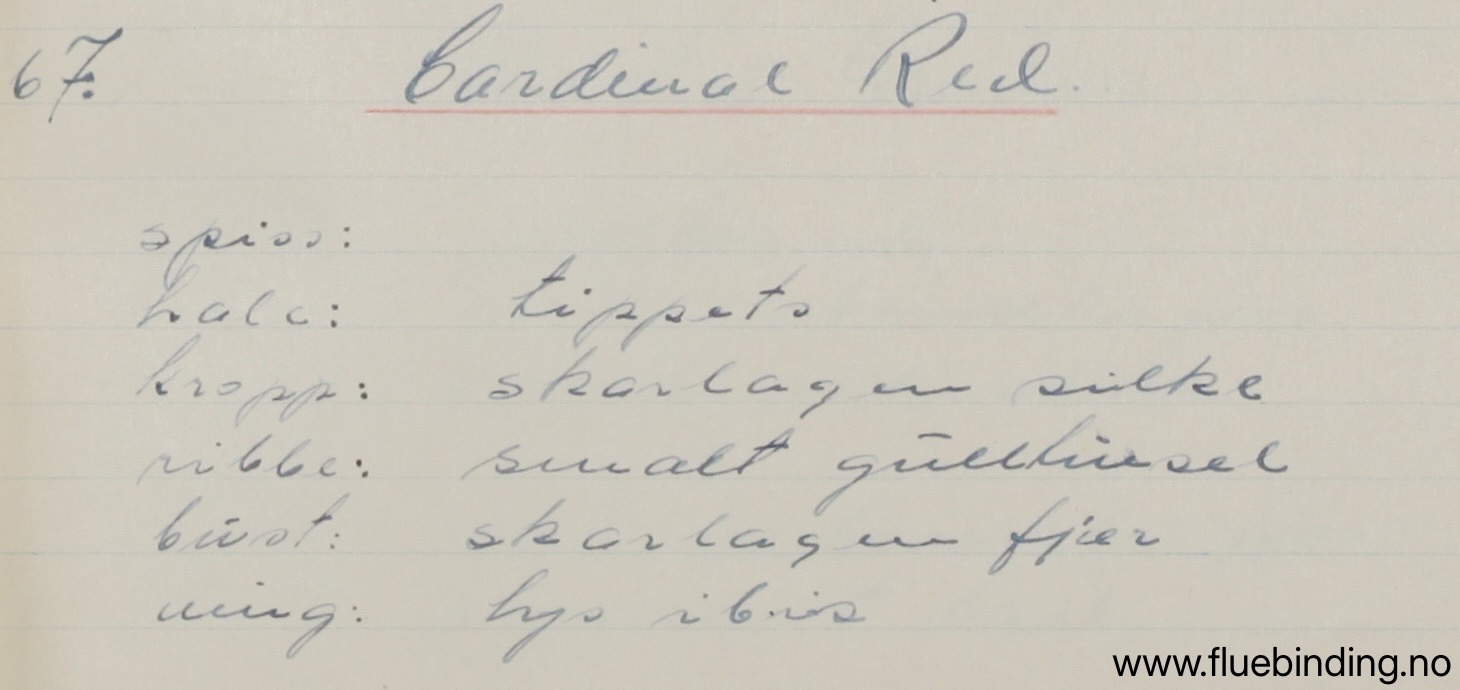 67. Cardinal Red.
spiss:
hale: tippets
kropp: skarlagen silke
ribbe: smalt gulltinsel
bust: skarlagen fjær
ving: lys ibis
www.fluebinding.no